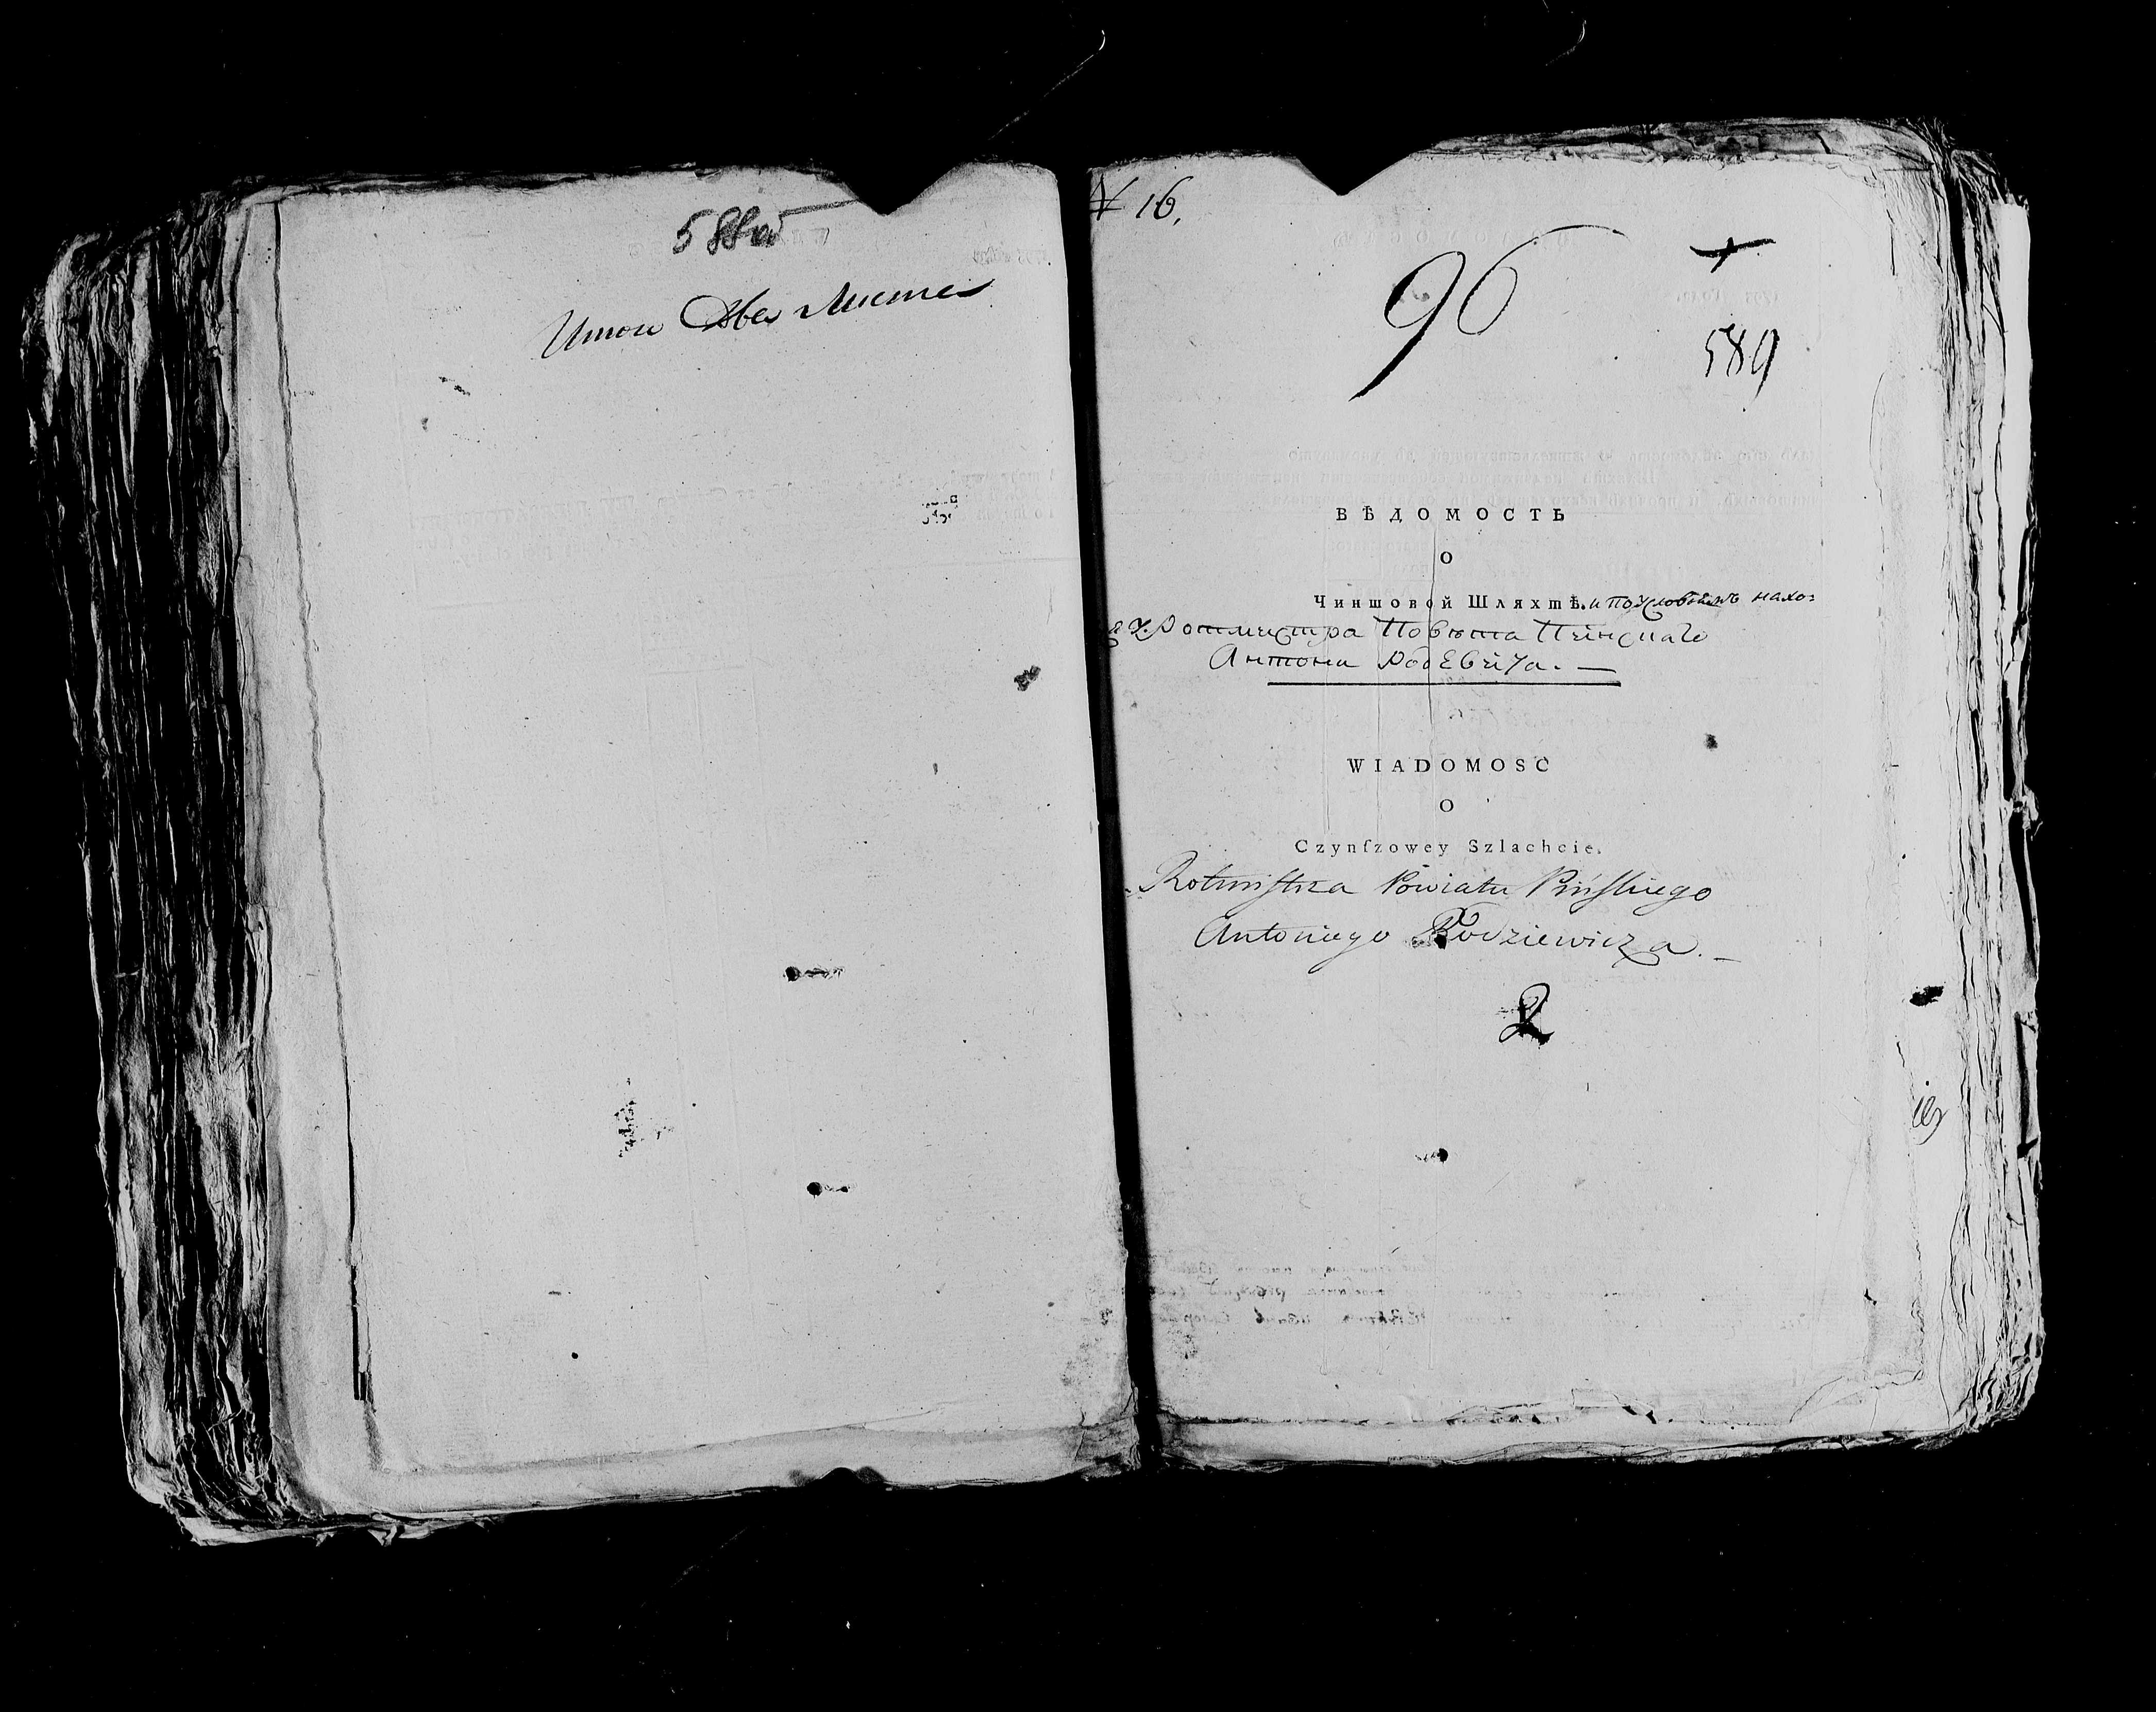 588об
Итого Два Листа
№ 16.
96
589
ВѢДОМОСТЬ
О
Чиншовой Шляхтѣ. и поусловіямъ нахо:
я у. Ротмистра Повѣта Пинскаго
Антона Родевича. —
WIADOMOSC
O
Czynſzowey Szlachcie.
Rotmiſtrza Powiatu Pińſkiego
Antoniego Rodziewicza. –
2